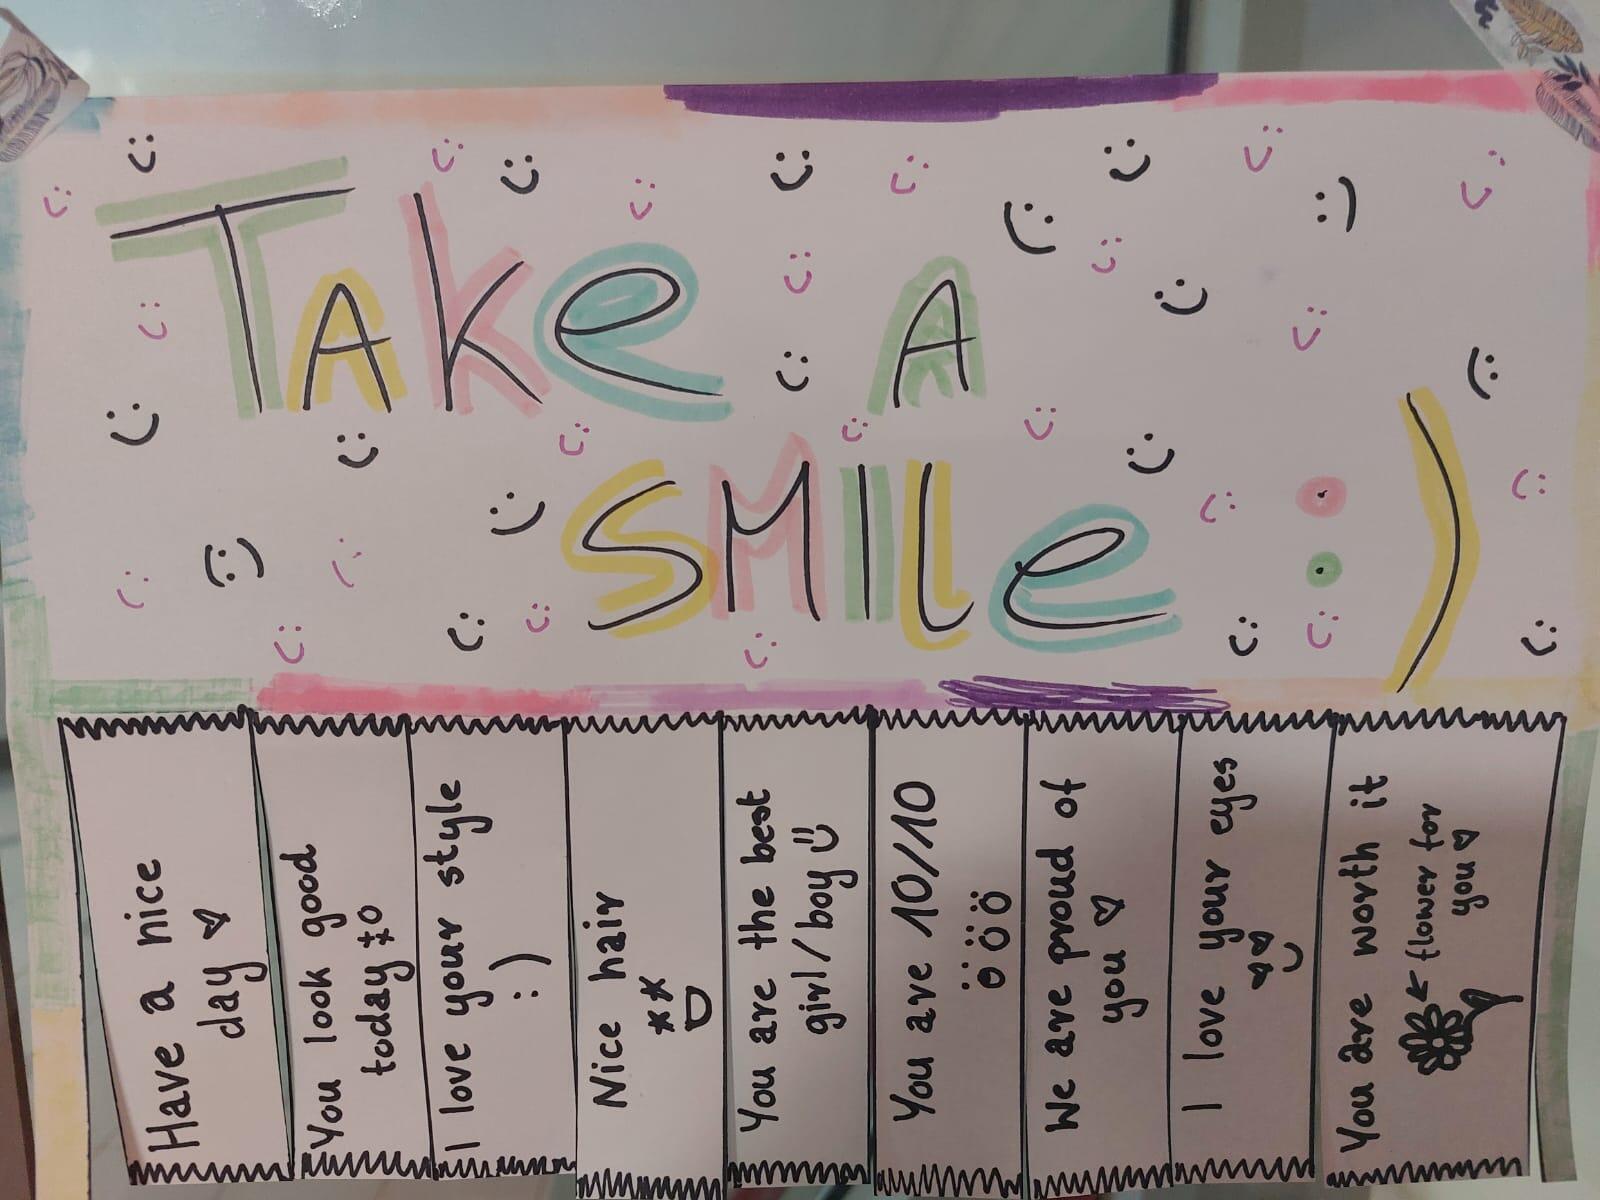 Take A
SMIle :)
Have a nice
day ♡
You look good
today
I love your style
:)
Nice hair
You are the best
girl/boy
You are 10/10
We are proud of
you ♡
I love your eyes
You are worth it
← flower for
you ♡